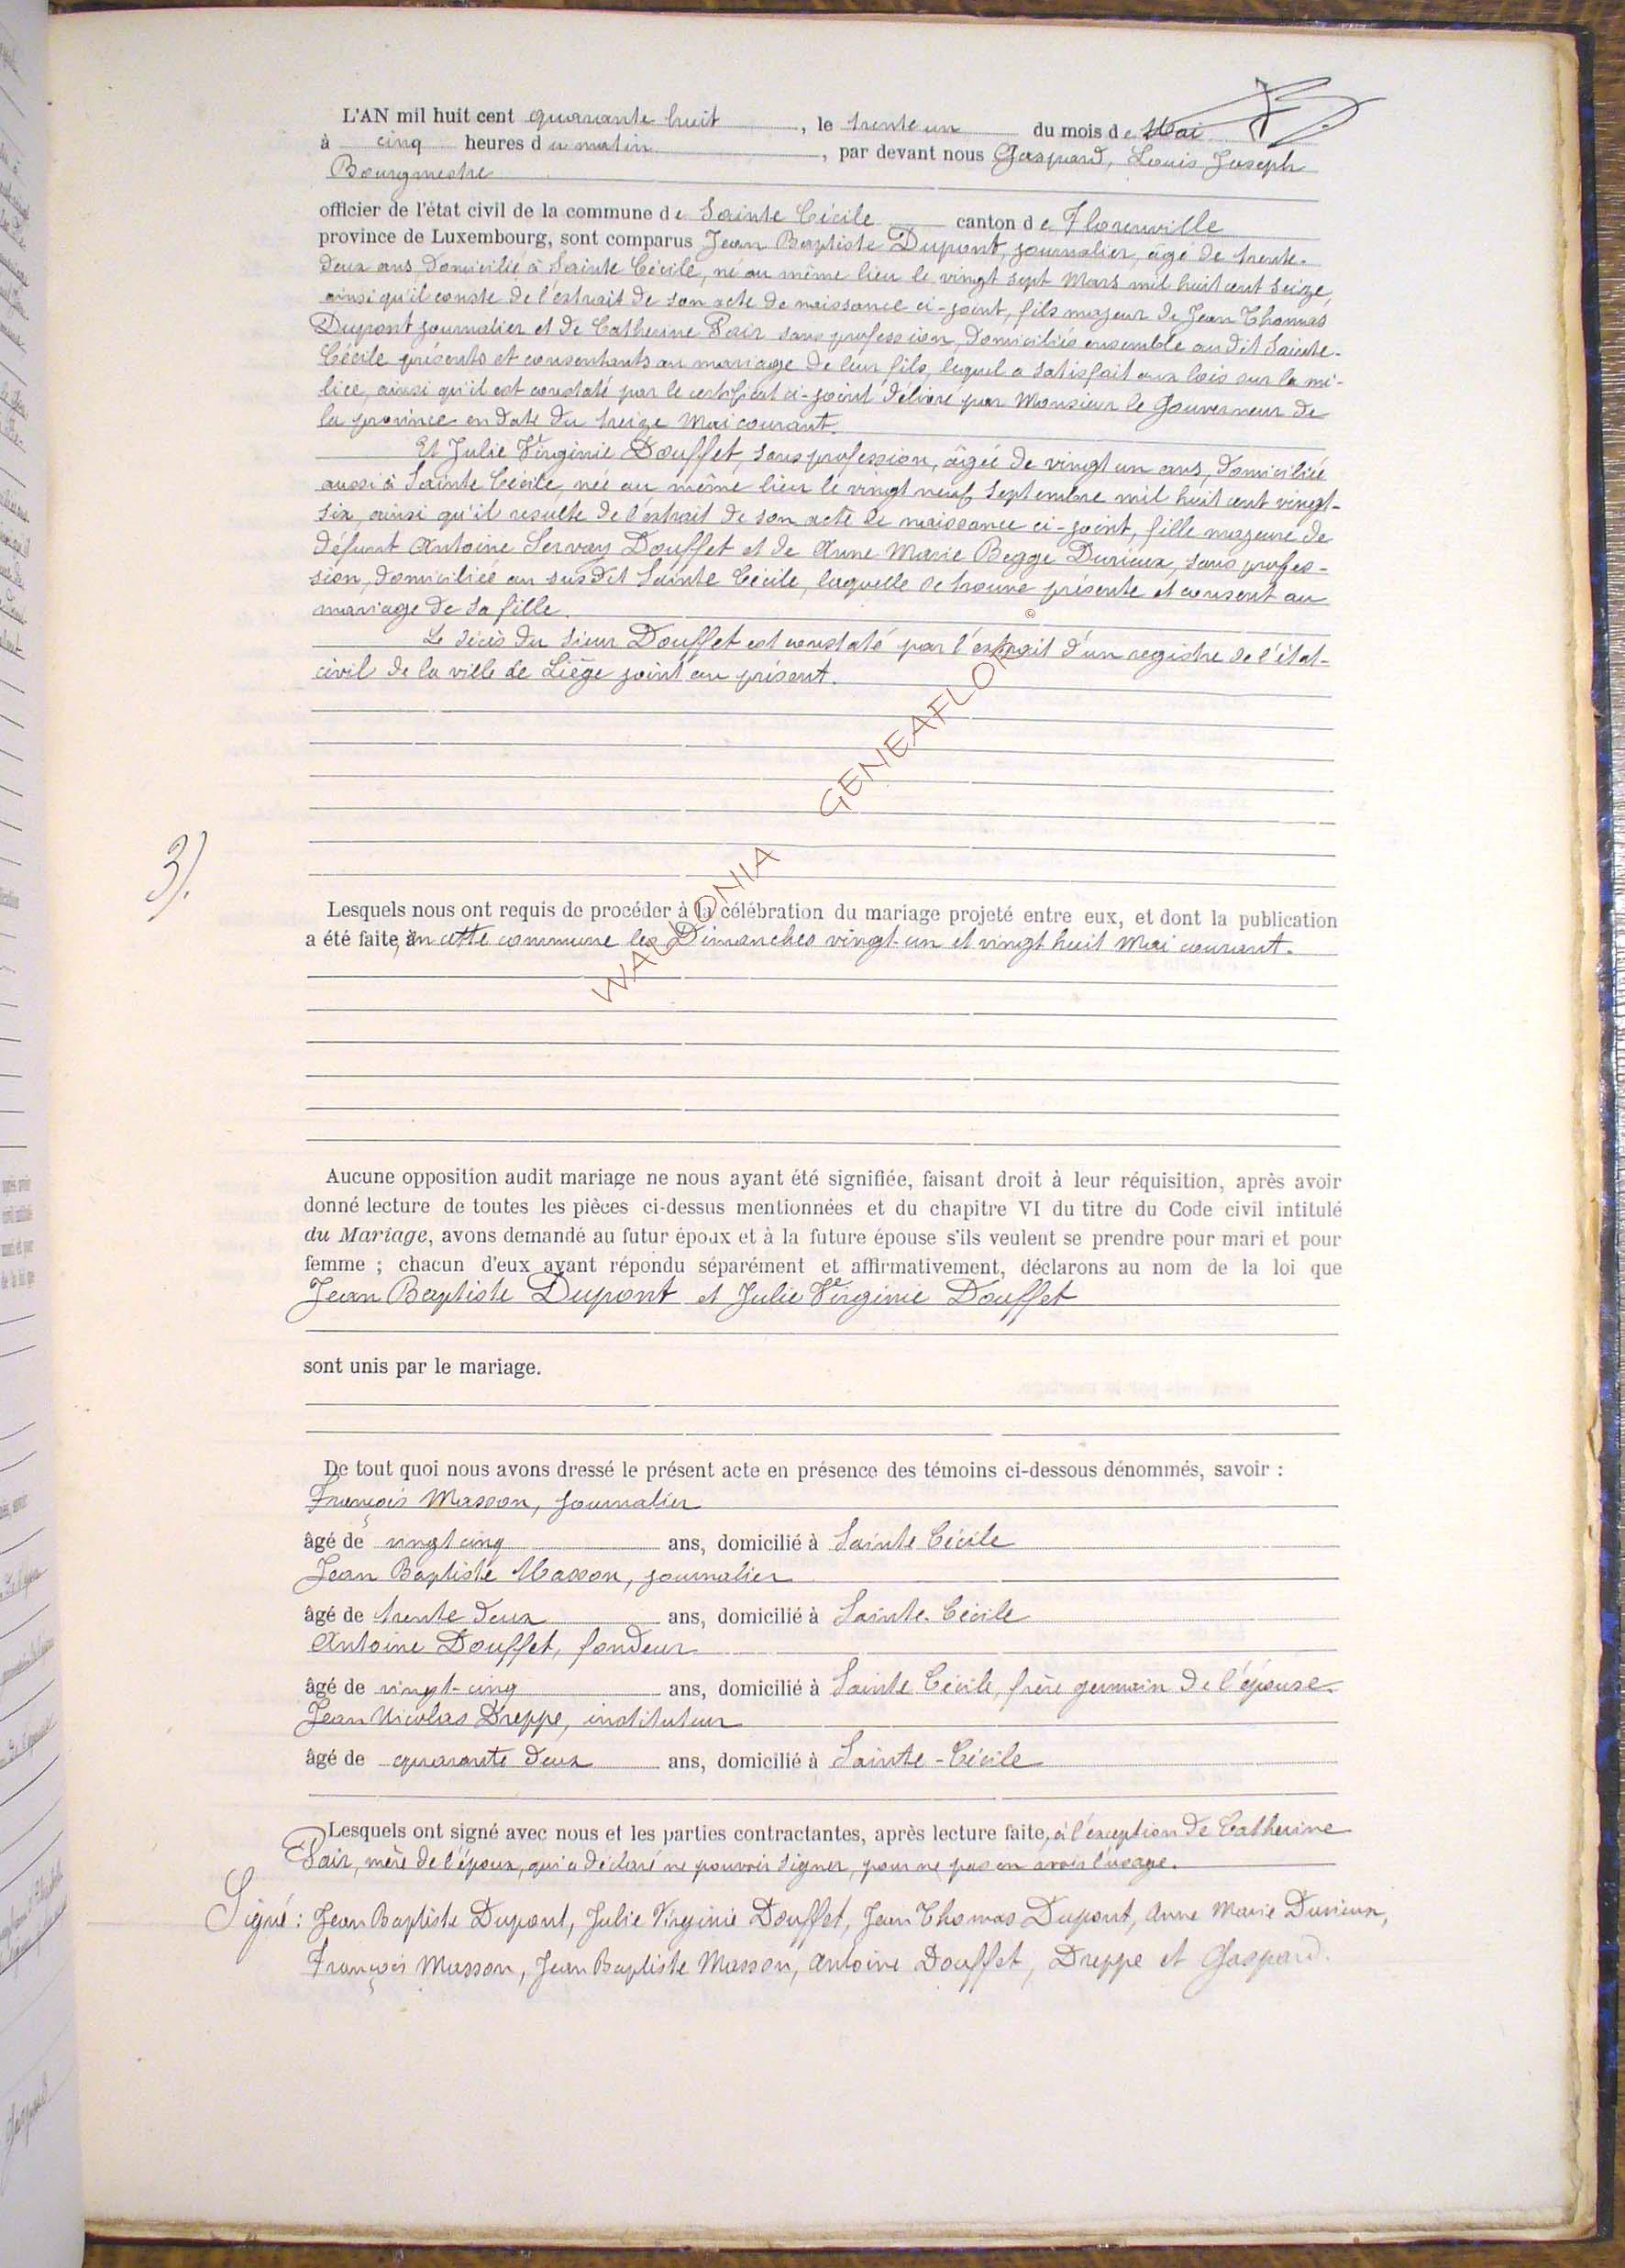 L'AN mil huit cent quarante huit, le trente un du mois de Mai
à cinq heures du matin, par devant nous Gaspard, Louis Joseph
Bourgmestre
officier de l'état civil de la commune de Sainte Cécile canton de Florenville
province de Luxembourg, sont comparus Jean Baptiste Dupont, journalier, âgé de trente-
deux ans, domicilié à Sainte Cécile, né au même lieu le vingt sept Mars mil huit cent seize,
ainsi qu'il conste de l'extrait de son acte de naissance ci-joint, fils majeur de Jean Thomas
Dupont journalier et de Catherine Pair sans profession, domiciliés ensemble au dit Sainte-
Cécile présents et consentants au mariage de leur fils, lequel a satisfait aux lois sur la mi-
lice, ainsi qu'il est constaté par le certificat ci-joint délivré par Monsieur le Gouverneur de
la province en date du treize Mai courant.
Et Julie Virginie Douffet, sans profession, âgée de vingt un ans, domiciliée
aussi à Sainte Cécile, née au même lieu le vingt neuf Septembre mil huit cent vingt-
six, ainsi qu'il resulte de l'extrait de son acte de naissance ci-joint, fille majeure de
défunt Antoine Servay Douffet et de Anne Marie Begge Durieux, sans profes-
sion, domiciliée au susdit Sainte Cécile, laquelle se trouve présente et consent au
mariage de sa fille.
Le décès du sieur Douffet est constaté par l'extrait d'un registre de l'état-
civil de la ville de Liège joint au présent.
WALLONIA GENEAFLOR ©
3).
Lesquels nous ont requis de procéder à la célébration du mariage projeté entre eux, et dont la publication
a été faite, en cette commune les Dimanches vingt-un et vingt huit Mai courant.
Aucune opposition audit mariage ne nous ayant été signifiée, faisant droit à leur réquisition, après avoir
donné lecture de toutes les pièces ci-dessus mentionnées et du chapitre VI du titre du Code civil intitulé
du Mariage, avons demandé au futur époux et à la future épouse s'ils veulent se prendre pour mari et pour
femme ; chacun d'eux ayant répondu séparément et affirmativement, déclarons au nom de la loi que
Jean Baptiste Dupont et Julie Virginie Douffet
sont unis par le mariage.
De tout quoi nous avons dressé le présent acte en présence des témoins ci-dessous dénommés, savoir :
François Masson, journalier
âgé de vingt cinq ans, domicilié à Sainte Cécile
Jean Baptiste Masson, journalier
âgé de trente deux ans, domicilié à Sainte-Cécile
Antoine Douffet, fondeur
âgé de vingt-cinq ans, domicilié à Sainte Cécile, frère germain de l'épouse.
Jean Nicolas Dreppe, instituteur
âgé de quarante deux ans, domicilié à Sainte-Cécile
Lesquels ont signé avec nous et les parties contractantes, après lecture faite, à l'exception de Catherine
Pair, mère de l'époux, qui a déclaré ne pouvoir signer, pour ne pas en avoir l'usage.
Signé : Jean Baptiste Dupont, Julie Virginie Douffet, Jean Thomas Dupont, Anne Marie Durieux,
François Masson, Jean Baptiste Masson, Antoine Douffet, Dreppe et Gaspard.